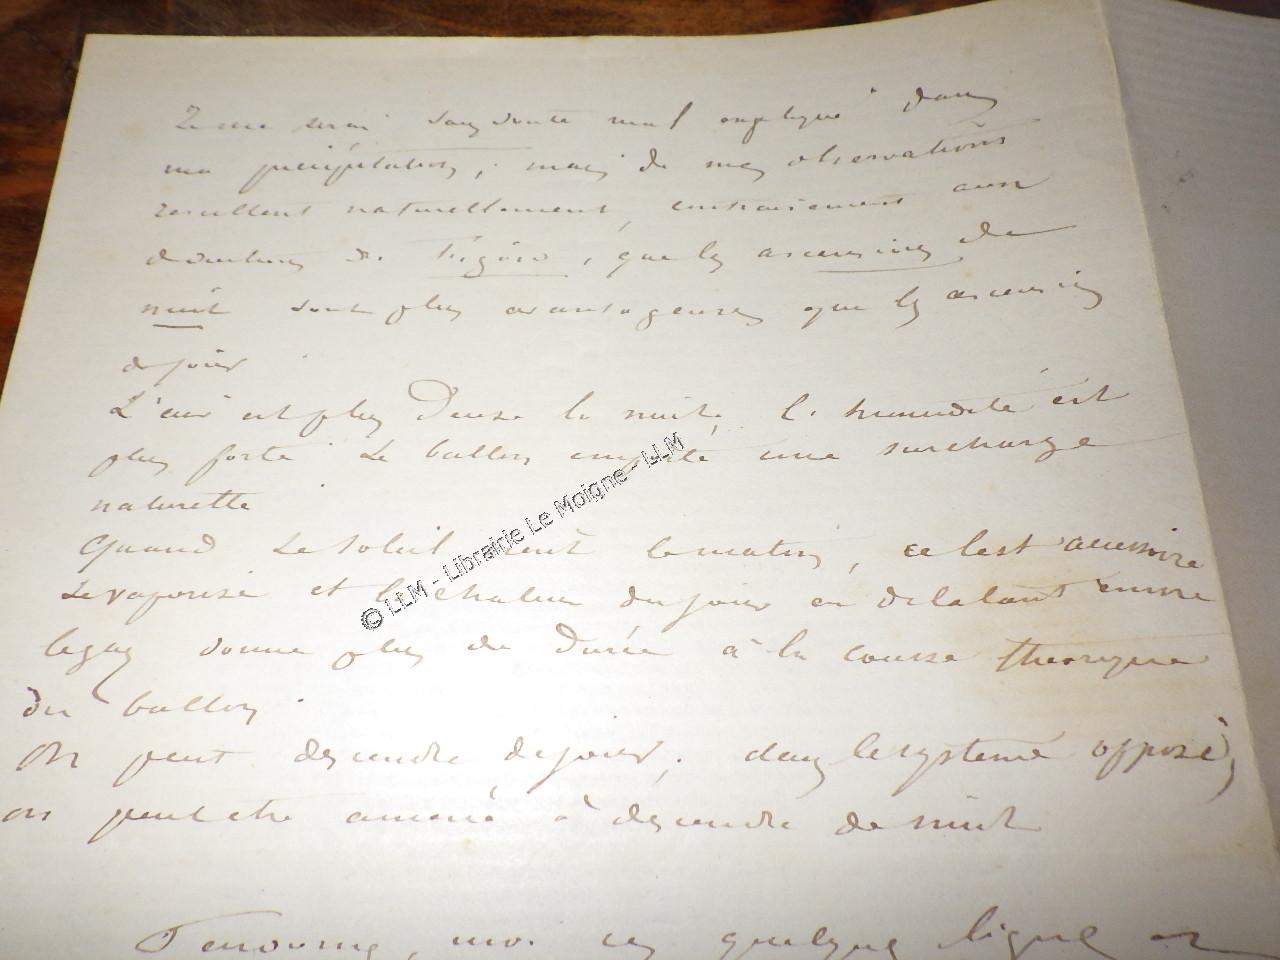 Je me serai sans doute mal expliqué dans
ma précipitation ; mais de mes observations
resultent naturellement, contrairement aux
du Figaro, que les ascensions de
nuit sont plus avantageuses que les ascensions
de jour
L'air est plus dense la nuit, l'humidité est
plus forte Le ballon emporte une surcharge
naturelle
Quand le soleil vient le matin, ce lest accessoire
se vaporise et la chaleur du jour en dilatant encore
le gaz donne plus de durée à la course theorique
du ballon.
On peut descendre de jour ; dans le systeme opposé,
on peut etre amené à descendre de nuit
moi ces quelques lignes et
© LLM - Librairie Le Moigne - LLM